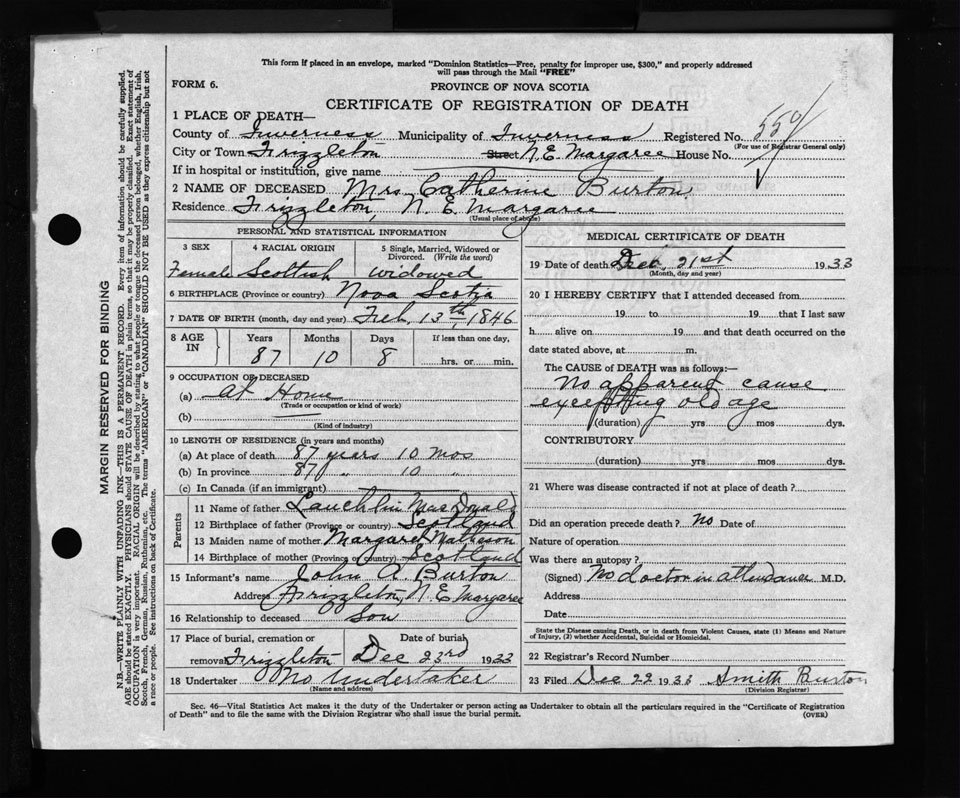 This form if placed in an envelope, marked "Dominion Statistics—Free, penalty for improper use, $300," and properly addressed
will pass through the Mail "FREE"
FORM 6.
PROVINCE OF NOVA SCOTIA
CERTIFICATE OF REGISTRATION OF DEATH
1 PLACE OF DEATH—
County of Inverness Municipality of Inverness Registered No.
(For use of Registrar General only)
City or Town Frizzleton Street N.E. Margaree House No.
If in hospital or institution, give name
2 NAME OF DECEASED Mrs Catherine Burton
Residence Frizzleton, N. E. Margaree
(Usual place of abode)
PERSONAL AND STATISTICAL INFORMATION
3 SEX 4 RACIAL ORIGIN 5 Single, Married, Widowed or Divorced. (Write the word)
Female Scottish widowed
6 BIRTHPLACE (Province or country) Nova Scotia
7 DATE OF BIRTH (month, day and year) Feb, 13th, 1846
8 AGE IN Years Months Days If less than one day,
87 10 8 hrs. or min.
9 OCCUPATION OF DECEASED
(a) at Home
(Trade or occupation or kind of work)
(b)
(Kind of industry)
10 LENGTH OF RESIDENCE (in years and months)
(a) At place of death 87 years 10 mos
(b) In province 87 " 10 "
(c) In Canada (if an immigrant)
Parents
11 Name of father Lauchlin MacDonald
12 Birthplace of father (Province or country) Scotland
13 Maiden name of mother Margaret Matheson
14 Birthplace of mother (Province or country) Scotland
15 Informant's name John A. Burton
Address Frizzleton, N. E Margaree
16 Relationship to deceased Son
17 Place of burial, cremation or removal Frizzleton Date of burial Dec 23rd 1933
18 Undertaker No Undertaker
(Name and address)
MEDICAL CERTIFICATE OF DEATH
19 Date of death Dec, 21st 1933
(Month, day and year)
20 I HEREBY CERTIFY that I attended deceased from
19 to 19 that I last saw
h alive on 19 and that death occurred on the
date stated above, at m.
The CAUSE of DEATH was as follows:—
No apparent cause
excepting old age
(duration) yrs mos dys.
CONTRIBUTORY
(duration) yrs mos dys.
21 Where was disease contracted if not at place of death?
Did an operation precede death? No Date of
Nature of operation
Was there an autopsy?
(Signed) No doctor in attendance M.D.
Address
Date
State the Disease causing Death, or in death from Violent Causes, state (1) Means and Nature
of Injury, (2) whether Accidental, Suicidal or Homicidal.
22 Registrar's Record Number
23 Filed Dec 22 1933 Smith Burton
(Division Registrar)
Sec. 46—Vital Statistics Act makes it the duty of the Undertaker or person acting as Undertaker to obtain all the particulars required in the "Certificate of Registration
of Death" and to file the same with the Division Registrar who shall issue the burial permit.
(OVER)
MARGIN RESERVED FOR BINDING
N.B.—WRITE PLAINLY WITH UNFADING INK—THIS IS A PERMANENT RECORD. Every item of information should be carefully supplied.
AGE should be stated EXACTLY. PHYSICIANS should STATE CAUSE OF DEATH in plain terms, so that it may be properly classified. Exact statement of
OCCUPATION is very important. RACIAL ORIGIN will be described by stating to what people or tongue the deceased person belonged, whether English, Irish,
Scotch, French, German, Russian, Ruthenian, etc. The terms "AMERICAN" or "CANADIAN" SHOULD NOT BE USED as they express citizenship but not
a race or people. See instructions on back of Certificate.